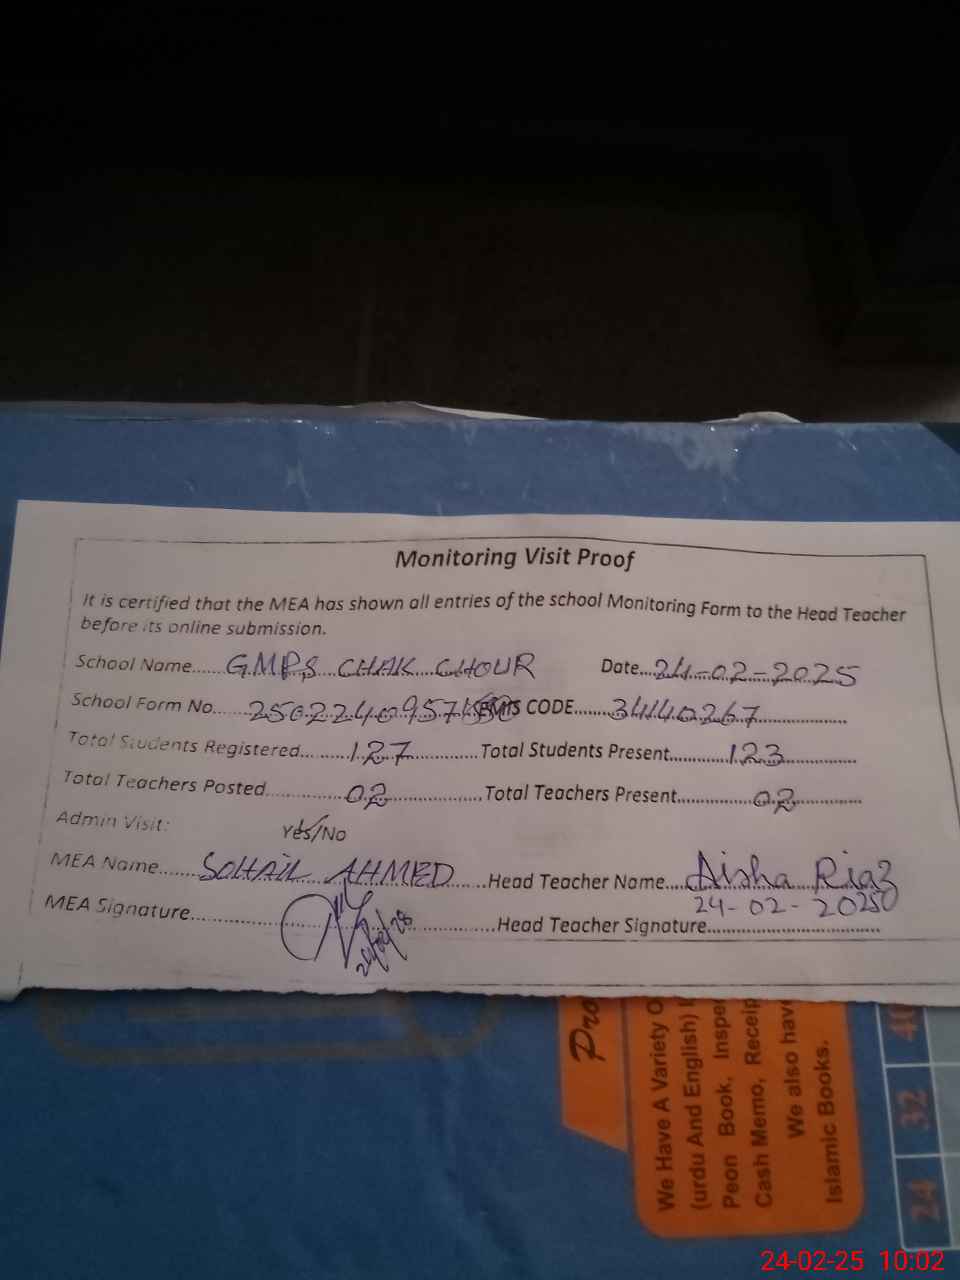 Monitoring Visit Proof
It is certified that the MEA has shown all entries of the school Monitoring Form to the Head Teacher
before its online submission.
School Name......GMPS CHAK CHOUR Date...24-02-2025
School Form No......EMIS CODE.......34140267
Total Students Registered........127 Total Students Present............123
Total Teachers Posted........02 Total Teachers Present............02
Admin Visit: Yes/No
MEA Name.......SOHAIL AHMED......Head Teacher Name....Aisha Riaz
24-02-2025
MEA Signature.............Head Teacher Signature.............
Pro
We Have A Variety O
(urdu And English)
Peon Book, Inspe
Cash Memo, Receip
We also hav
Islamic Books.
24 32 40
24-02-25 10:02